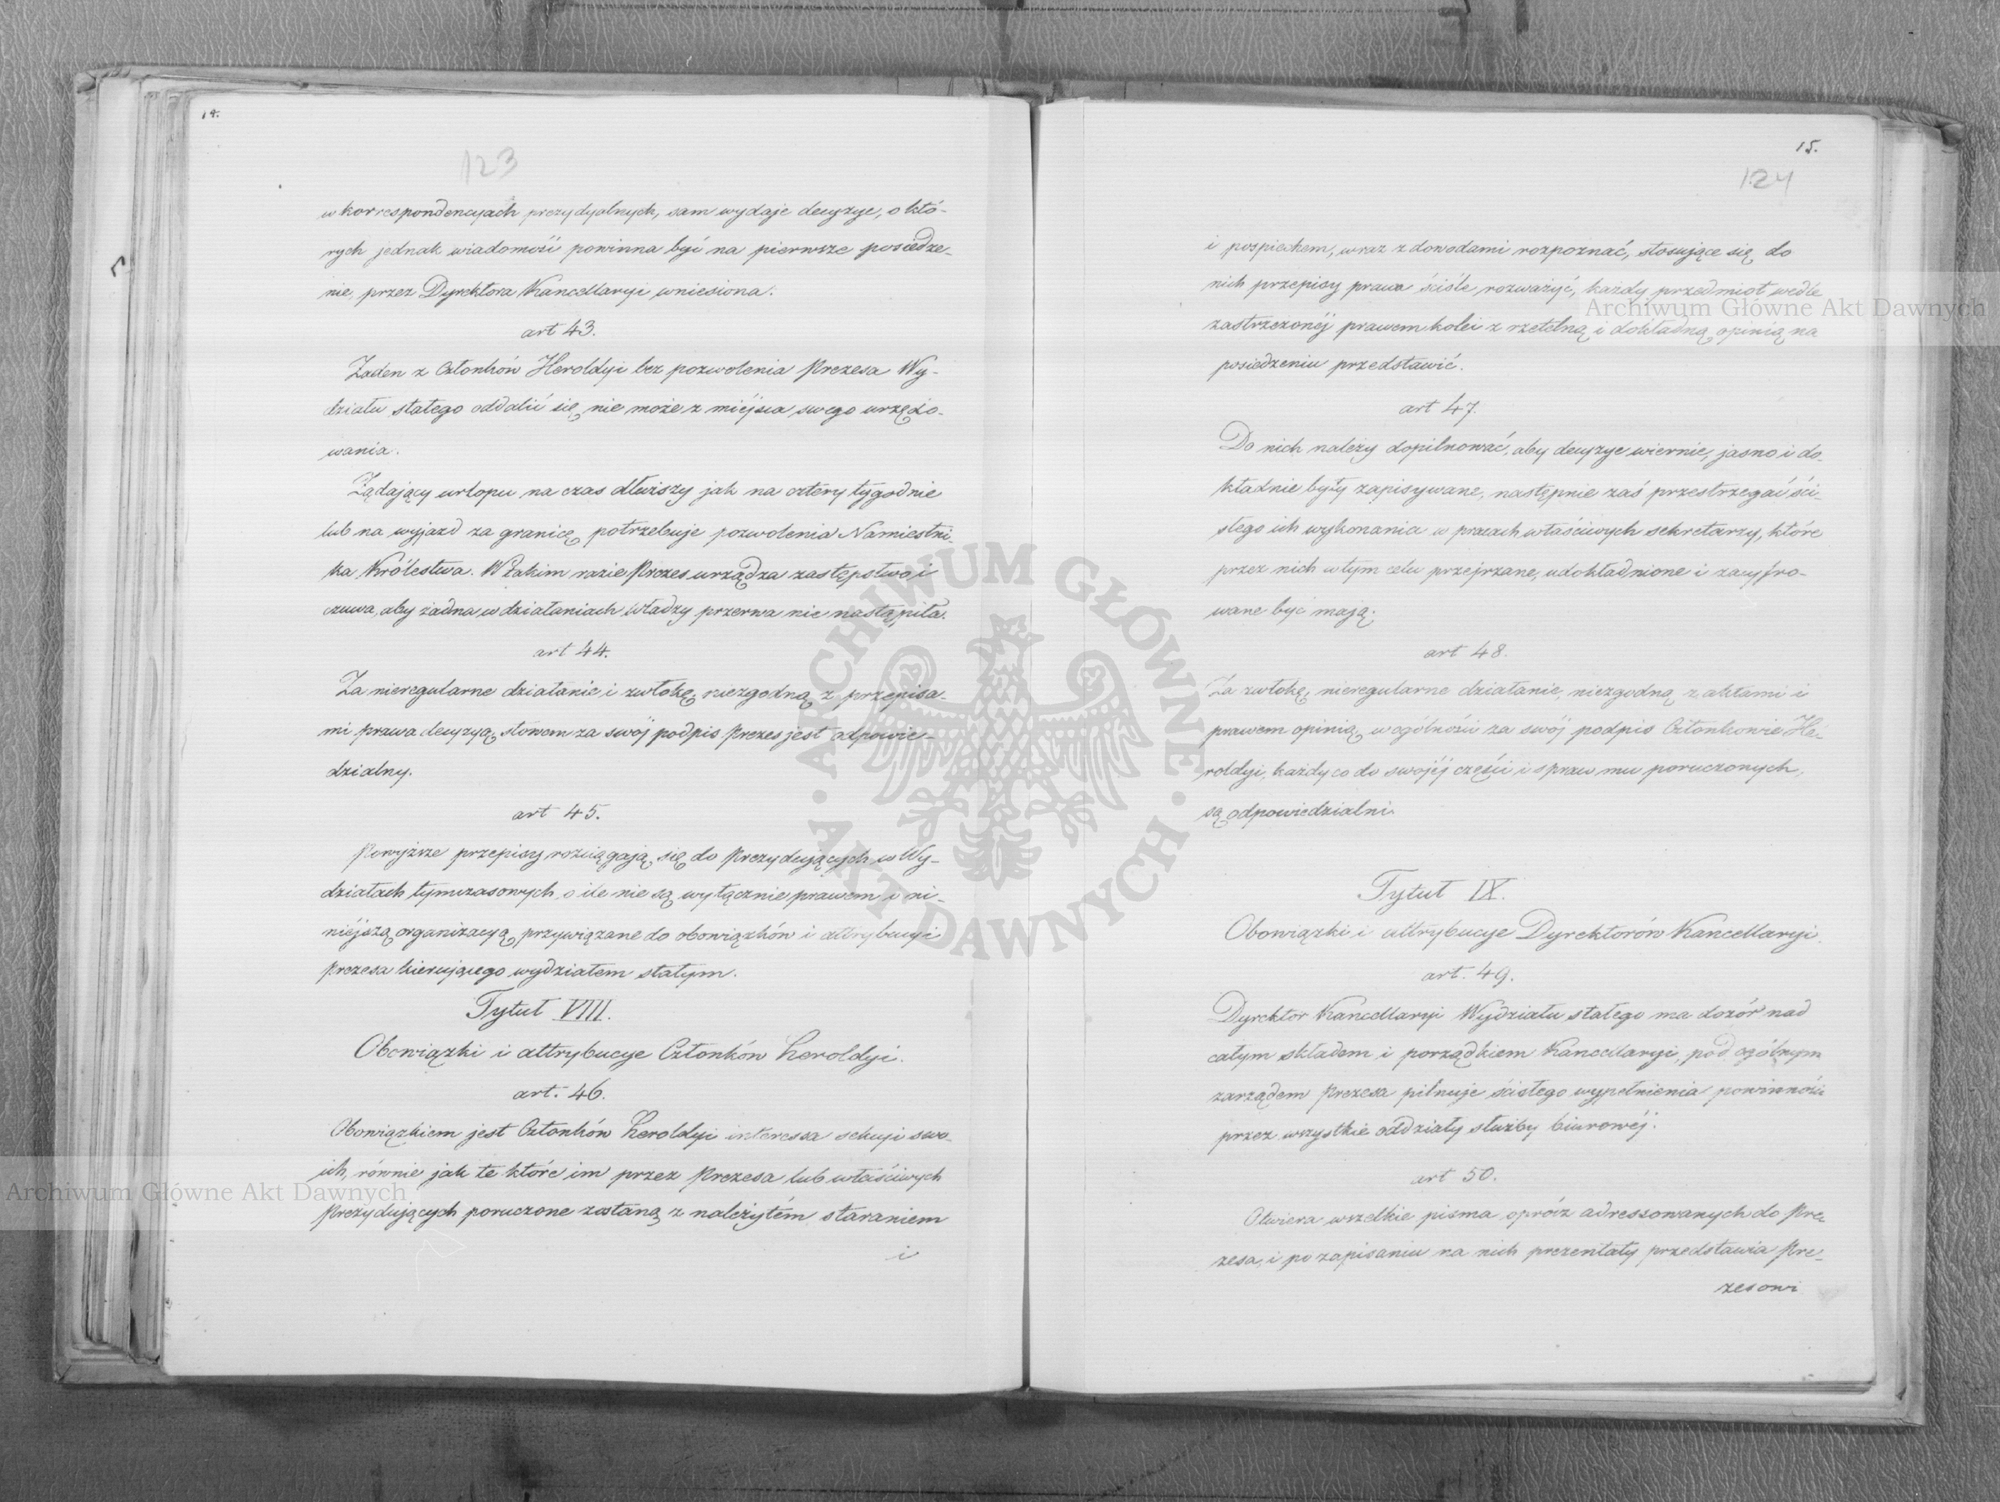 14.
123
w korrespondencyach prezydyalnych, sam wydaje decyzye, o któ-
rych jednak wiadomość powinna być na pierwsze posiedze-
nie przez Dyrektora Kancellaryi wniesiona.
art 43.
Żaden z Członków Heroldyi bez pozwolenia Prezesa Wy-
działu stałego oddalić się nie może z miéjsca swego urzędo-
wania.
Żądający urlopu na czas dłuższy jak na cztéry tygodnie
lub na wyjazd za granicę potrzebuje pozwolenia Namiestni-
ka Królestwa. W takim razie Prezes urządza zastępstwo, i
czuwa, aby żadna w działaniach władzy przerwa nie nastąpiła.
art 44.
Za nieregularne działanie i zwłokę, niezgodną z przepisa-
mi prawa decyzyą, słowem za swój podpis Prezes jest odpowie-
dzialny.
art 45.
Powyższe przepisy rozciągają się do Prezydujących w Wy-
działach tymczasowych, o ile nie są wyłącznie prawem i ni-
niéjszą organizacyą przywiązane do obowiązków i attrybucyi
Prezesa kierującego wydziałem stałym.
Tytuł VIII.
Obowiązki i attrybucye Członków Heroldyi.
art. 46.
Obowiązkiem jest Członków Heroldyi interessa sekcyi swo-
ich, równie jak te które im przez Prezesa lub właściwych
Prezydujących poruczone zostaną z należytém staraniem
i
15.
124
i pospiechem, wraz z dowodami rozpoznać, stosujące się do
nich przepisy prawa ściśle rozważyć, każdy przedmiot wedle
zastrzeżonéj prawem kolei z rzetelną i dokładną opinią na
posiedzeniu przedstawić.
art 47.
Do nich należy dopilnować, aby decyzye wiernie, jasno i do-
kładnie były zapisywane, następnie zaś przestrzegać ści-
słego ich wykonania w pracach właściwych sekretarzy, które
przez nich w tym celu przejrzane, udokładnione i zacyfro-
wane być mają.
art 48.
Za zwłokę, nieregularne działanie, niezgodną z aktami i
prawem opinią, w ogólności za swój podpis Członkowie He-
roldyi, każdy co do swojéj części i spraw mu poruczonych,
są odpowiedzialni.
Tytuł IX.
Obowiązki i attrybucye Dyrektorów Kancellaryi.
art. 49.
Dyrektor Kancellaryi Wydziału stałego ma dozór nad
całym składem i porządkiem Kancellaryi, pod ogólnym
zarządem Prezesa pilnuje ścisłego wypełnienia powinności
przez wszystkie oddziały służby biurowéj.
art 50.
Otwiera wszelkie pisma oprócz adressowanych do Pre-
zesa, i po zapisaniu na nich prezentaty przedstawia Pre-
zesowi
Archiwum Główne Akt Dawnych
ARCHIWUM GŁÓWNE · AKT DAWNYCH ·
Archiwum Główne Akt Dawnych